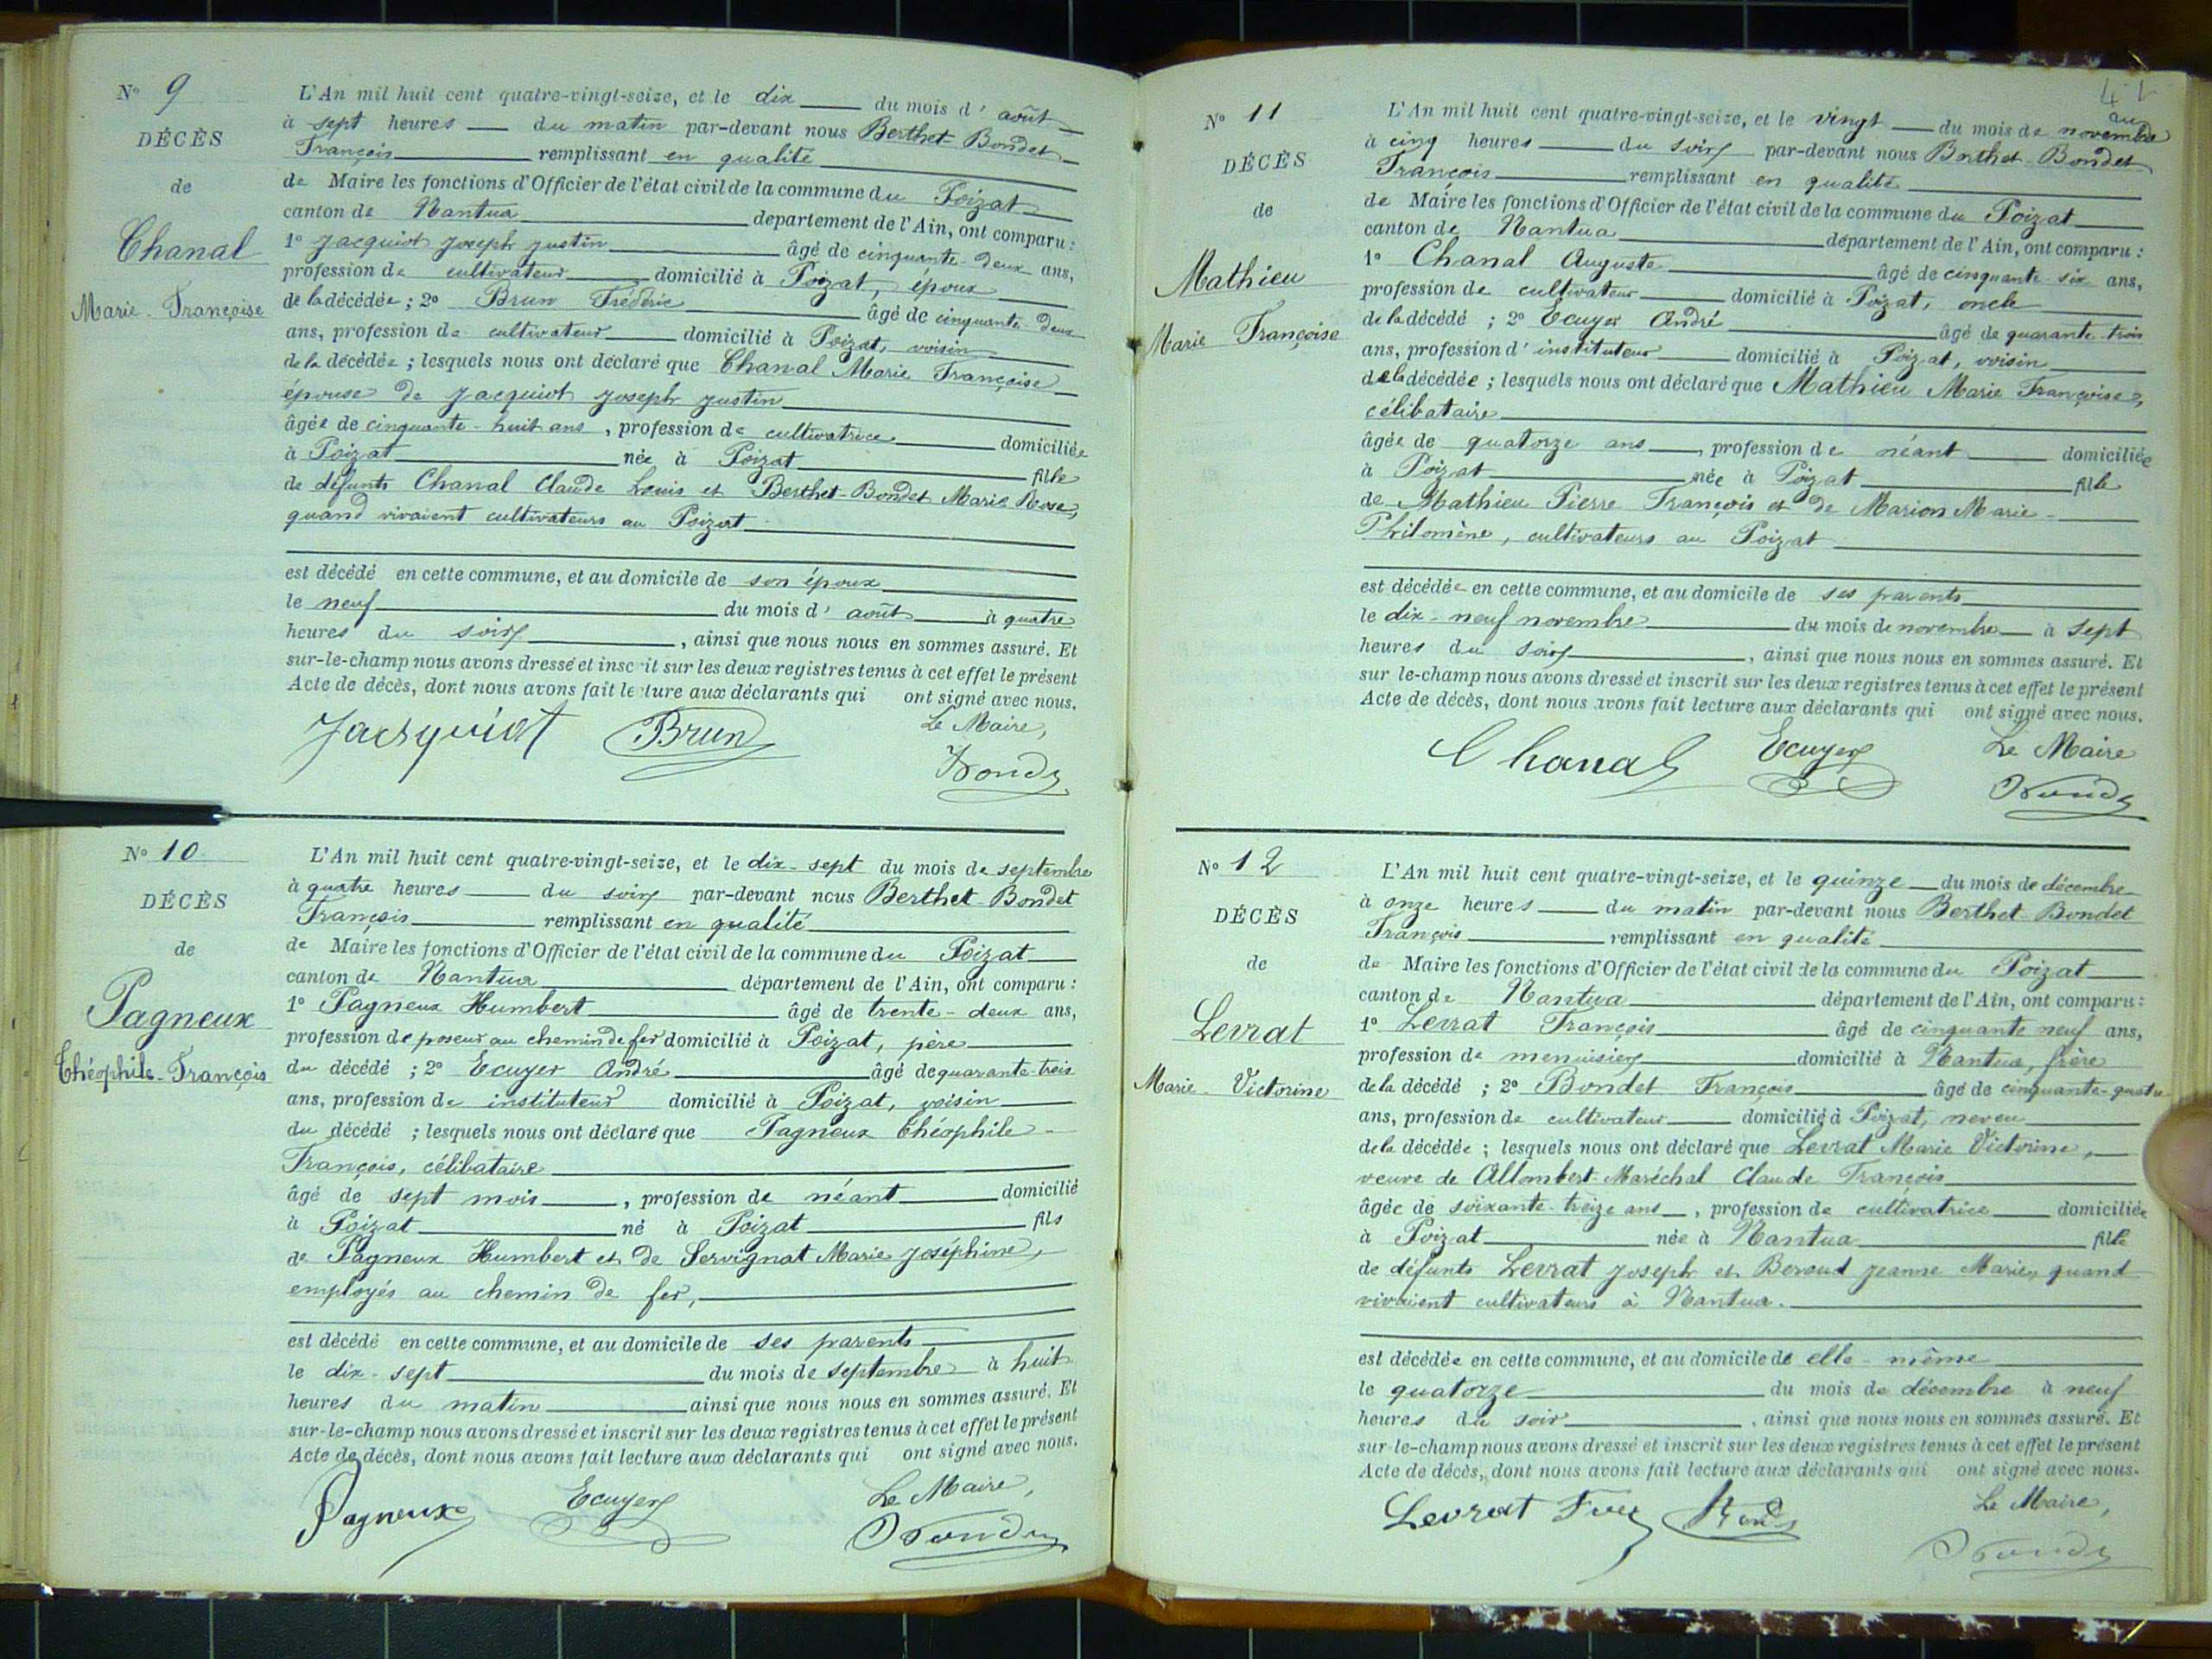 N° 9
DÉCÈS
de
Chanal
Marie-Françoise
L'An mil huit cent quatre-vingt-seize, et le dix du mois d'août
à sept heures du matin par-devant nous Berthet-Bondet
François remplissant en qualité
de Maire les fonctions d'Officier de l'état civil de la commune du Poizat
canton de Nantua departement de l'Ain, ont comparu :
1° Jacquiot Joseph Justin âgé de cinquante-deux ans,
profession de cultivateur domicilié à Poizat, époux
de la décédée ; 2° Brun Fréderic âgé de cinquante-deux
ans, profession de cultivateur domicilié à Poizat, voisin
de la décédée ; lesquels nous ont déclaré que Chanal Marie Françoise
épouse de Jacquiot Joseph Justin
âgée de cinquante-huit ans, profession de cultivatrice domiciliée
à Poizat née à Poizat fille
de défunts Chanal Claude Louis et Berthet-Bondet Marie Rose,
quand vivaient cultivateurs au Poizat
est décédé en cette commune, et au domicile de son époux
le neuf du mois d'août à quatre
heures du soir, ainsi que nous nous en sommes assuré. Et
sur-le-champ nous avons dressé et inscrit sur les deux registres tenus à cet effet le présent
Acte de décès, dont nous avons fait lecture aux déclarants qui ont signé avec nous.
Jacquiot Brun Le Maire,
N° 10
DÉCÈS
de
Pagneux
Théophile-François
L'An mil huit cent quatre-vingt-seize, et le dix-sept du mois de septembre
à quatre heures du soir par-devant nous Berthet-Bondet
François remplissant en qualité
de Maire les fonctions d'Officier de l'état civil de la commune du Poizat
canton de Nantua département de l'Ain, ont comparu :
1° Pagneux Humbert âgé de trente-deux ans,
profession de poseur au chemin de fer domicilié à Poizat, père
du décédé ; 2° Ecuyer André âgé de quarante-trois
ans, profession de instituteur domicilié à Poizat, voisin
du décédé ; lesquels nous ont déclaré que Pagneux Théophile-
François, célibataire
âgé de sept mois, profession de néant domicilié
à Poizat né à Poizat fils
de Pagneux Humbert et de Servignat Marie Joséphine,
employés au chemin de fer,
est décédé en cette commune, et au domicile de ses parents
le dix-sept du mois de septembre à huit
heures du matin ainsi que nous nous en sommes assuré. Et
sur-le-champ nous avons dressé et inscrit sur les deux registres tenus à cet effet le présent
Acte de décès, dont nous avons fait lecture aux déclarants qui ont signé avec nous.
Pagneux Ecuyer Le Maire,
N° 11
DÉCÈS
de
Mathieu
Marie Françoise
L'An mil huit cent quatre-vingt-seize, et le vingt du mois de novembre
à cinq heures du soir par-devant nous Berthet-Bondet
François remplissant en qualité
de Maire les fonctions d'Officier de l'état civil de la commune du Poizat
canton de Nantua département de l'Ain, ont comparu :
1° Chanal Auguste âgé de cinquante-six ans,
profession de cultivateur domicilié à Poizat, oncle
de la décédé ; 2° Ecuyer André âgé de quarante-trois
ans, profession d'instituteur domicilié à Poizat, voisin
de la décédée ; lesquels nous ont déclaré que Mathieu Marie Françoise,
célibataire
âgée de quatorze ans, profession de néant domiciliée
à Poizat née à Poizat fille
de Mathieu Pierre François et de Marion Marie-
Philomène, cultivateurs au Poizat
est décédée en cette commune, et au domicile de ses parents
le dix-neuf novembre du mois de novembre à sept
heures du soir, ainsi que nous nous en sommes assuré. Et
sur le-champ nous avons dressé et inscrit sur les deux registres tenus à cet effet le présent
Acte de décès, dont nous avons fait lecture aux déclarants qui ont signé avec nous.
Chanal Ecuyer Le Maire
N° 12
DÉCÈS
de
Levrat
Marie-Victorine
L'An mil huit cent quatre-vingt-seize, et le quinze du mois de décembre
à onze heures du matin par-devant nous Berthet-Bondet
François remplissant en qualité
de Maire les fonctions d'Officier de l'état civil de la commune du Poizat
canton de Nantua département de l'Ain, ont comparu :
1° Levrat François âgé de cinquante neuf ans,
profession de menuisier domicilié à Nantua, frère
de la décédé ; 2° Bondet François âgé de cinquante-quatre
ans, profession de cultivateur domicilié à Poizat, neveu
de la décédée ; lesquels nous ont déclaré que Levrat Marie Victorine,
veuve de Allombert-Maréchal Claude François
âgée de soixante-treize ans, profession de cultivatrice domiciliée
à Poizat née à Nantua fille
de défunts Levrat Joseph et Beroud Jeanne Marie, quand
vivaient cultivateurs à Nantua.
est décédée en cette commune, et au domicile de elle-même
le quatorze du mois de décembre à neuf
heures du soir, ainsi que nous nous en sommes assuré. Et
sur-le-champ nous avons dressé et inscrit sur les deux registres tenus à cet effet le présent
Acte de décès, dont nous avons fait lecture aux déclarants qui ont signé avec nous.
Levrat Le Maire,